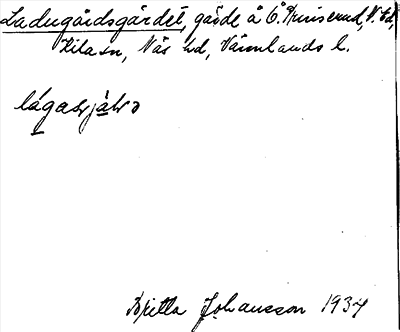 Ladugårdsgärdet, gärde å Ö. Kruiserud, V. Ed,
Kila sn, Näs hd, Värmlands l.
lágasjàlsɔ
Britta Johansson 1934